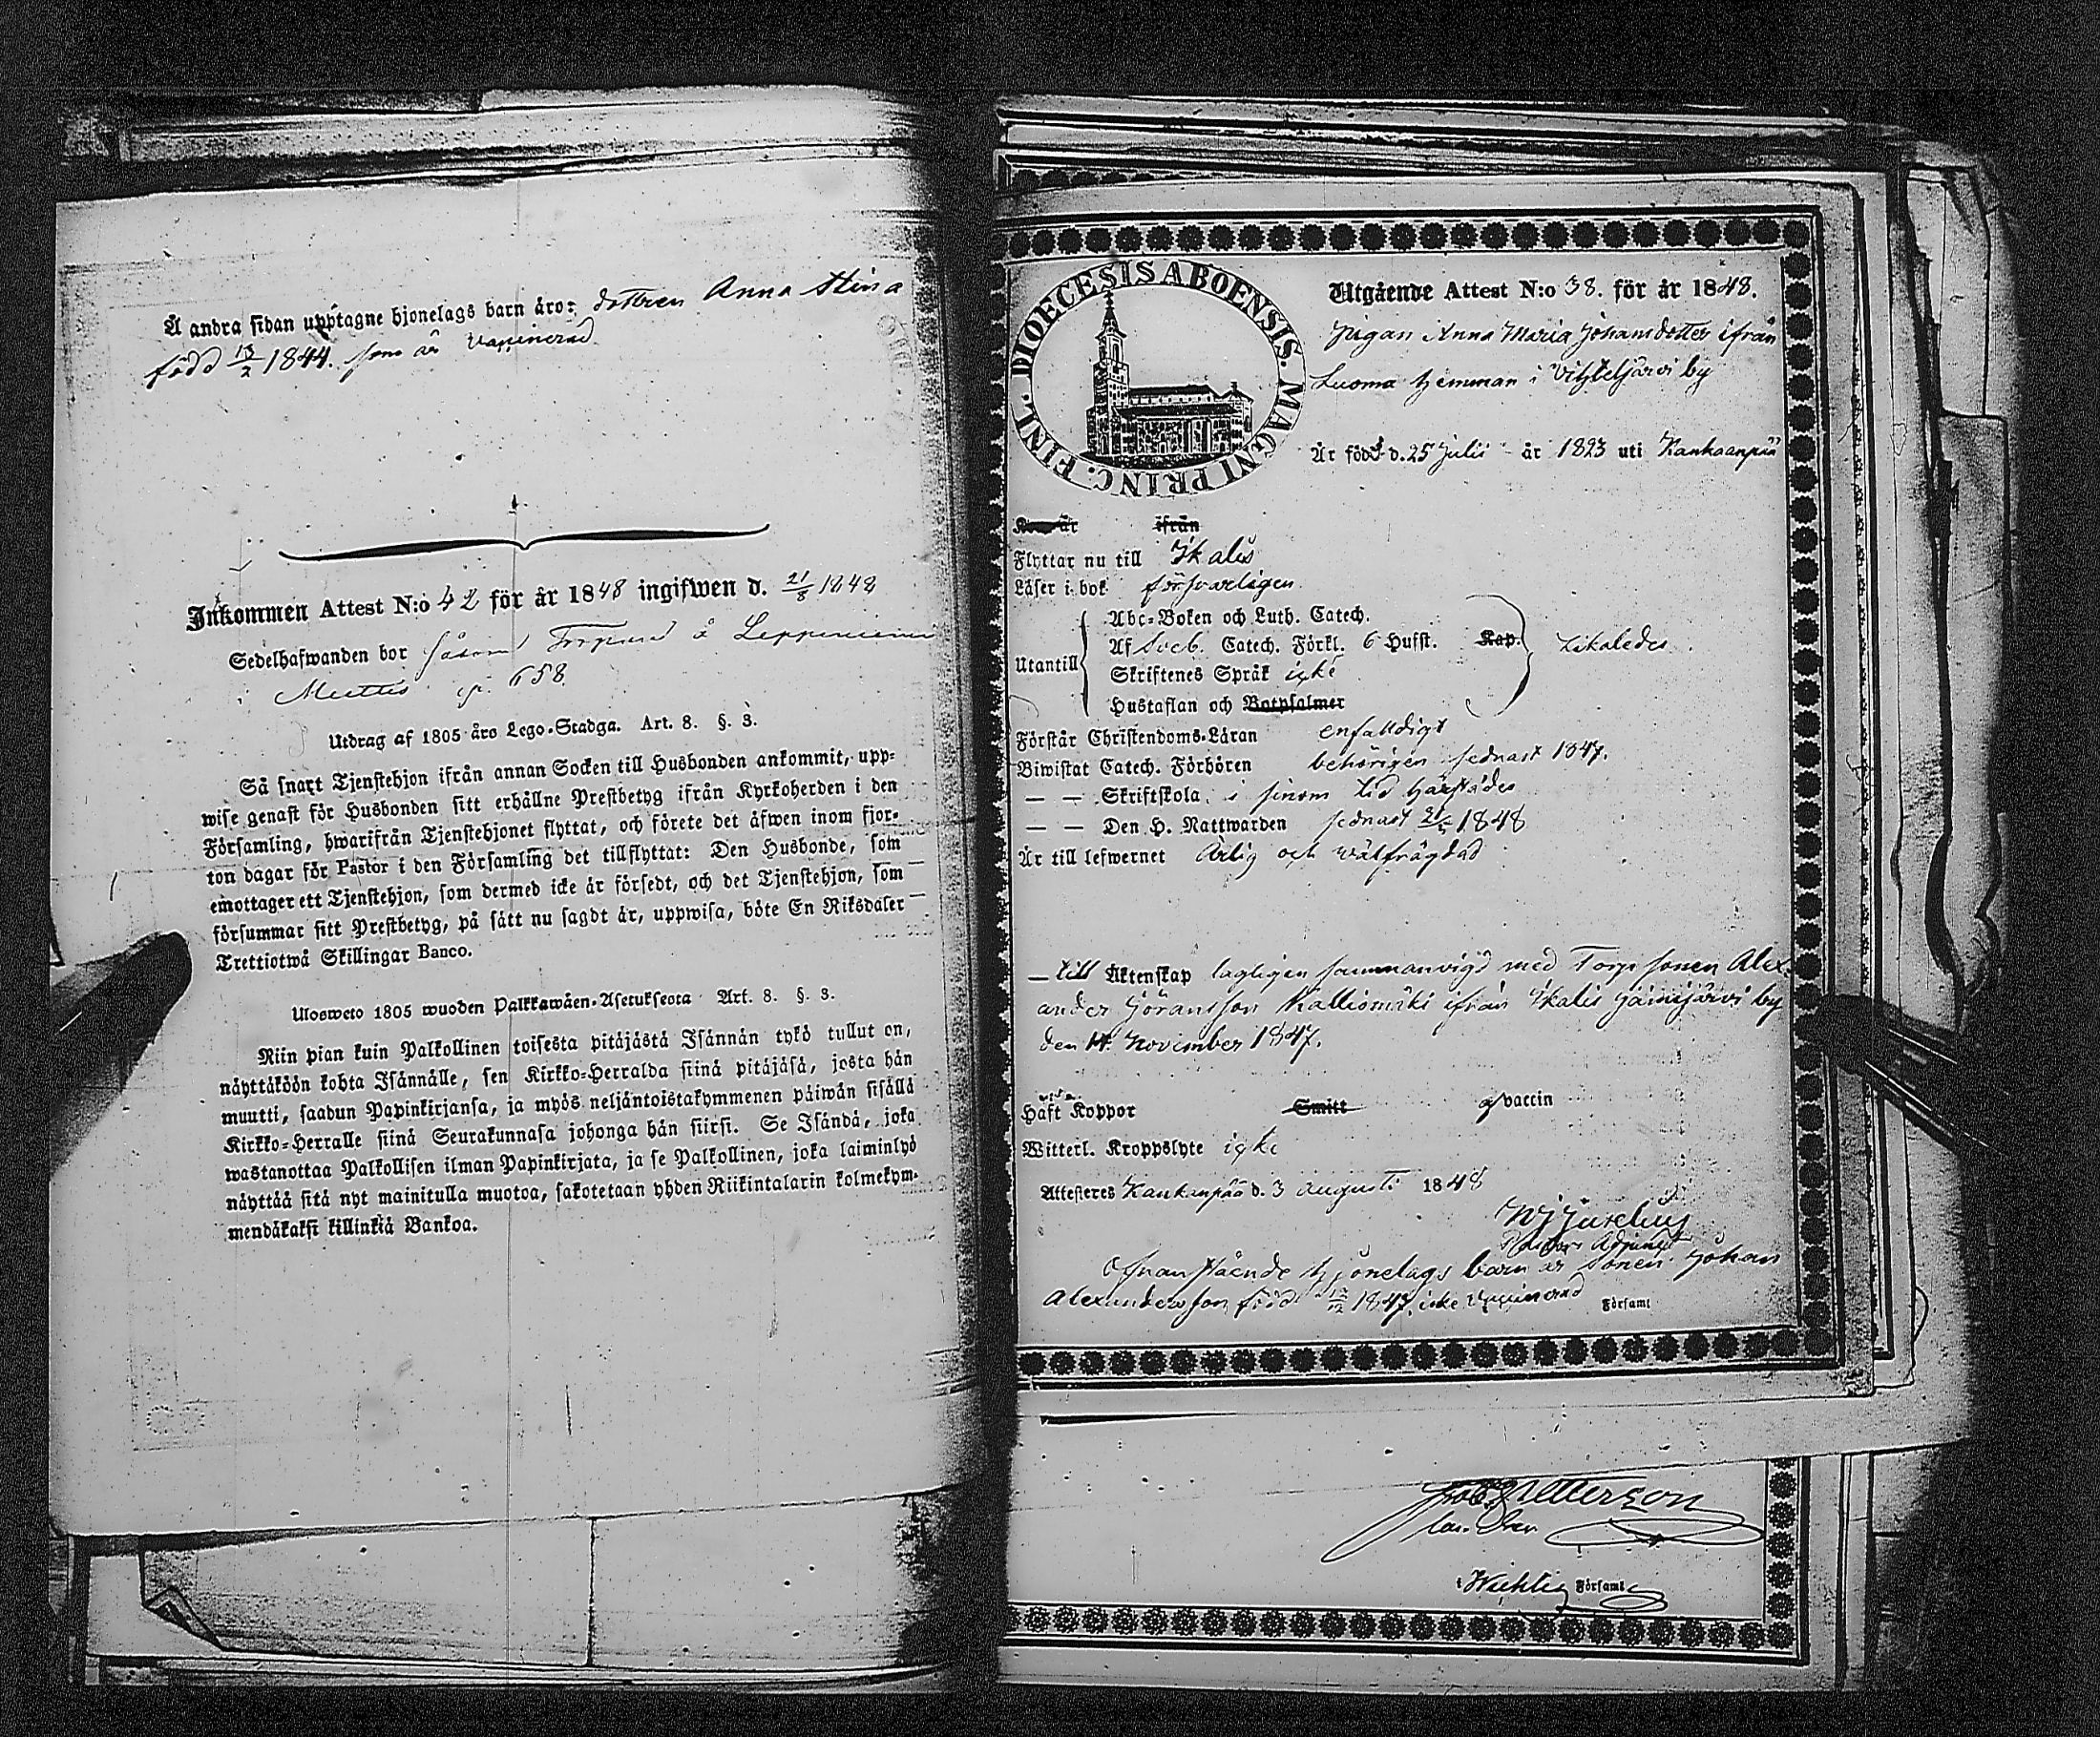 Å andra sidan upptagne hjonelags barn äro: dottren Anna Stina
född 13/2 1844. som är vaccinerad
Inkommen Attest N:o 42 för år 1848 ingifwen d. 21/8 1848
Sedelhafwanden bor såsom Torpare å Leppeniemi
i Miettis p. 658.
Utdrag af 1805 års Lego-Stadga. Art. 8. §. 3.
Så snart Tjenstehjon ifrån annan Socken till Husbonden ankommit, upp-
wise genast för Husbonden sitt erhållne Prestbetyg ifrån Kyrkoherden i den
Församling, hwarifrån Tjenstehjonet flyttat, och förete det äfwen inom fjor-
ton dagar för Pastor i den Församling det tillflyttat: Den Husbonde, som
emottager ett Tjenstehjon, som dermed icke är försedt, och det Tjenstehjon, som
försummar sitt Prestbetyg, på sätt nu sagdt är, uppwisa, böte En Riksdaler
Trettiotwå Skillingar Banco.
Ulosweto 1805 wuoden Palkkawäen-Asetuksesta Art. 8. §. 3.
Niin pian kuin Palkollinen toisesta pitäjästä Isännän tykö tullut on,
näyttäköön kohta Isännälle, sen Kirkko-Herralda siinä pitäjäsä, josta hän
muutti, saadun Papinkirjansa, ja myös neljäntoistakymmenen päiwän sisällä
Kirkko-Herralle siinä Seurakunnasa johonga hän siirsi. Se Isändä, joka
wastanottaa Palkollisen ilman Papinkirjata, ja se Palkollinen, joka laiminlyö
näyttää sitä nyt mainitulla muotoa, sakotetaan yhden Riikintalarin kolmekym-
mendäkaksi killinkiä Bankoa.
DIOECESIS ABOENSIS. MAGNI PRINC. FINL.
Utgående Attest N:o 38. för år 1848.
Pigan Anna Maria Johansdotter ifrån
Luoma hemman i Vihteljärvi by
Är född d. 25 Julii år 1823 uti Kankaanpää
är ifrån
Flyttar nu till Ikalis
Läser i bok försvarligen
Utantill
Abc-Boken och Luth. Catech.
Af Sveb. Catech. Förkl. 6 Hufst. Kap. Likaledes.
Skriftenes Språk icke
Hustaflan och Botpsalmer
Förstår Christendoms-Läran enfaldigt
Biwistat Catech. Förhören behörigen sednast 1847.
— — Skriftskola i sinom tid härstädes
— — Den H. Nattwarden sednast 21/5 1848
Är till lefwernet Ärlig och wälfrägdad
— till Äktenskap lagligen sammanvigd med Torp sonen Alex-
ander Göransson Kalliomäki ifrån Ikalis Jämijärvi by
den 14 November 1847.
Haft Koppor Smitt af vaccin
Witterl. Kroppslyte icke
Attesteres Kankanpää d. 3 Augusti 1848
WJ Jurelius
Pastors Adjunkt
Ofvanstående hjonelags barn är sonen Johan
Alexandersson född 1847, icke Vaccinerad
Församl
Petterson
i Församl